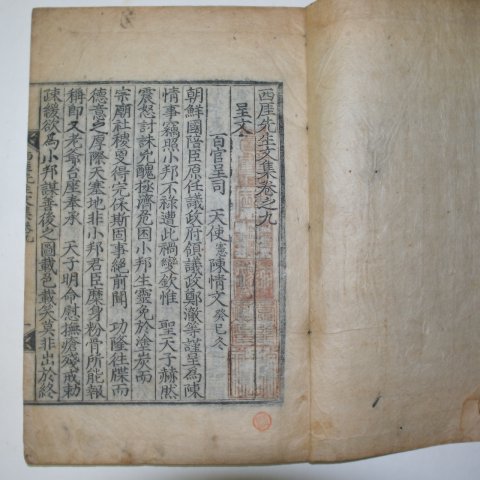 西厓先生文集卷之九
呈文
百官呈司 天使憲陳情文癸巳冬
朝鮮國陪臣原任議政府領議政鄭澈等謹呈爲陳
情事竊照小邦不祿遭此禍變欽惟 聖天子赫然
震怒討誅兇醜極濟危困小邦生靈免於塗炭而
宗廟社稷更得完休斯固事絶前聞 功隆往牒而
德意之厚際天塞地非小邦君臣糜身粉骨所能報
稱卽又老爺台座奏承 天子明命慰撫瘡殘戒勅
疎緩欲爲小邦謀善後之圖載色載笑莫非出於終